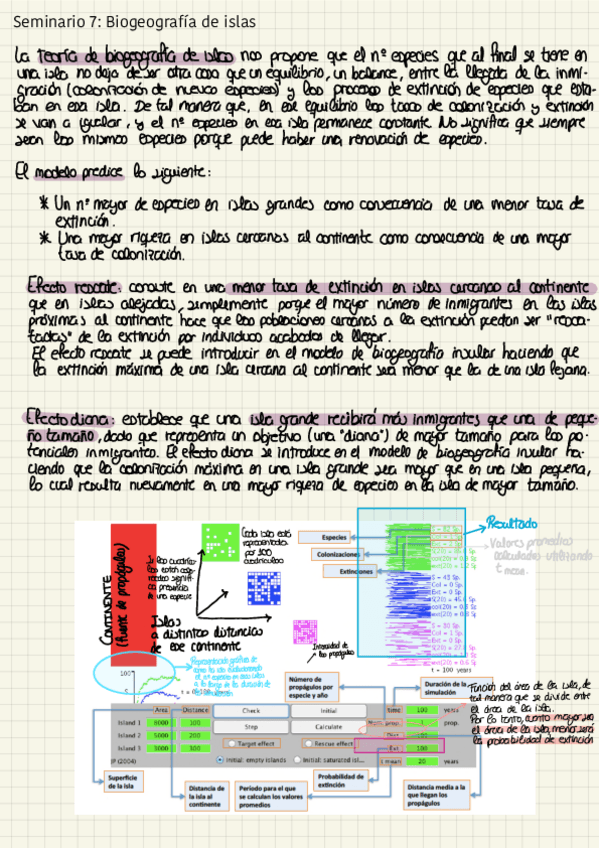 Seminario 7: Biogeografía de islas
La Teoría de biogeografía de islas nos propone que el nº especies que al final se tiene en
una isla no deja de ser otra cosa que un equilibrio, un balance, entre la llegada de la inmi-
gración (colonización de nuevas especies) y los procesos de extinción de especies que esta-
ban en esa isla. De tal manera que, en ese equilibrio las tasas de colonización y extinción
se van a igualar, y el nº especies en esa isla permanece constante. No significa que siempre
sean las mismas especies porque puede haber una renovación de especies.
El modelo predice lo siguiente:
* Un nº mayor de especies en islas grandes como consecuencia de una menor tasa de
extinción.
* Una mayor riqueza en islas cercanas al continente como consecuencia de una mayor
tasa de colonización.
Efecto rescate: consiste en una menor tasa de extinción en islas cercanas al continente
que en islas alejadas, simplemente porque el mayor número de inmigrantes en las islas
próximas al continente hace que las poblaciones cercanas a la extinción puedan ser "resca-
tadas" de la extinción por individuos acabados de llegar.
El efecto rescate se puede introducir en el modelo de biogeografía insular haciendo que
la extinción máxima de una isla cercana al continente sea menor que la de una isla lejana.
Efecto diana: establece que una isla grande recibirá más inmigrantes que una de peque-
ño tamaño, dado que representa un objetivo (una "diana") de mayor tamaño para los po-
tenciales inmigrantes. El efecto diana se introduce en el modelo de biogeografía insular ha-
ciendo que la colonización máxima en una isla grande sea mayor que en una isla pequeña,
lo cual resulta nuevamente en una mayor riqueza de especies en la isla de mayor tamaño.
CONTINENTE
(fuente de propágulos)
Cada isla está
representada
por 100
cuadrículas
Islas
a distintas distancias
de ese continente
Intensidad de
los propágulos
Especies
Colonizaciones
Extinciones
Resultado
Valores promedios
calculados utilizando
t mean.
S = 43 Sp.
Col = 0 Sp.
Ext = 0 Sp.
S = 30 Sp.
Col = 1 Sp.
t = 100 years
100
S
Número de
propágulos por
especie y año
Duración de la
simulación
Area Distance Check Initial time 100 years
Island 1 8000 100 Step Calculate 1 prop.
Island 2 5000 200 Target effect Rescue effect
Island 3 3000 300 Ext. 100
JP (2004) Initial: empty islands Initial: saturated isl... t mean 20 years
Función del área de la isla, de
tal manera que se divide entre
el área de la isla.
Por lo tanto, cuanto mayor sea
el área de la isla menor será
la probabilidad de extinción
Superficie
de la isla
Distancia de
la isla al
continente
Periodo para el que
se calculan los valores
promedios
Probabilidad de
extinción
Distancia media a la
que llegan los
propágulos